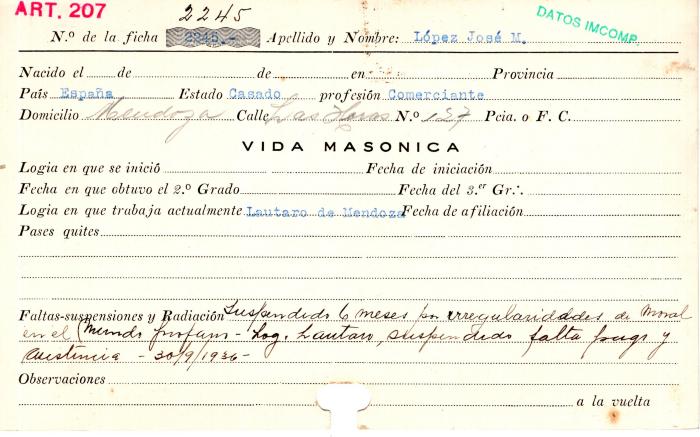 ART. 207
2245
DATOS IMCOMP.
N.º de la ficha 2245.- Apellido y Nombre: López José M.
Nacido el de de en Provincia
País España Estado Casado profesión Comerciante
Domicilio Mendoza Calle Las Heras N.º 157 Pcia. o F. C.
VIDA MASONICA
Logia en que se inició Fecha de iniciación
Fecha en que obtuvo el 2.º Grado Fecha del 3.er Gr∴
Logia en que trabaja actualmente Lautaro de Mendoza Fecha de afiliación
Pases quites
Faltas-suspensiones y Radiación Suspendido 6 meses por irregularidades de moral
en el (Mundo profano - Log. Lautaro, suspendido falta pago y
asistencia - 30/9/1936-
Observaciones
a la vuelta